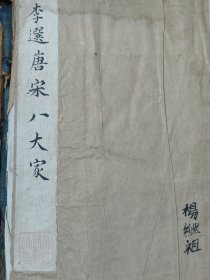 李選唐宋八大家
楊繼祖